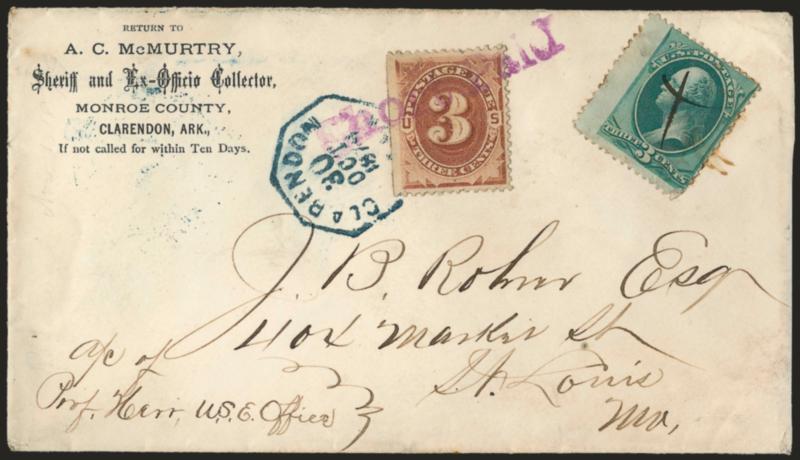 RETURN TO
A. C. McMURTRY,
Sheriff and Ex-Officio Collector,
MONROE COUNTY,
CLARENDON, ARK.,
If not called for within Ten Days.
CLARENDON
POSTAGE DUE
U 3 S
THREE CENTS
U.S. POSTAGE
THREE 3 CENTS
J. B. Rohrer Esq
404 Market St
St. Louis
Mo.
a/c of
Prof. Herr, U.S.E. Office